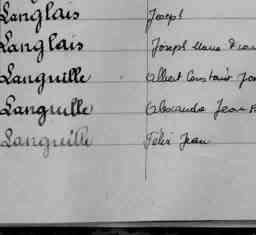 Langlais Joseph
Langlais Joseph Marie
Languille Albert Constant
Languille Alexandre Jean
Languille Félix Jean